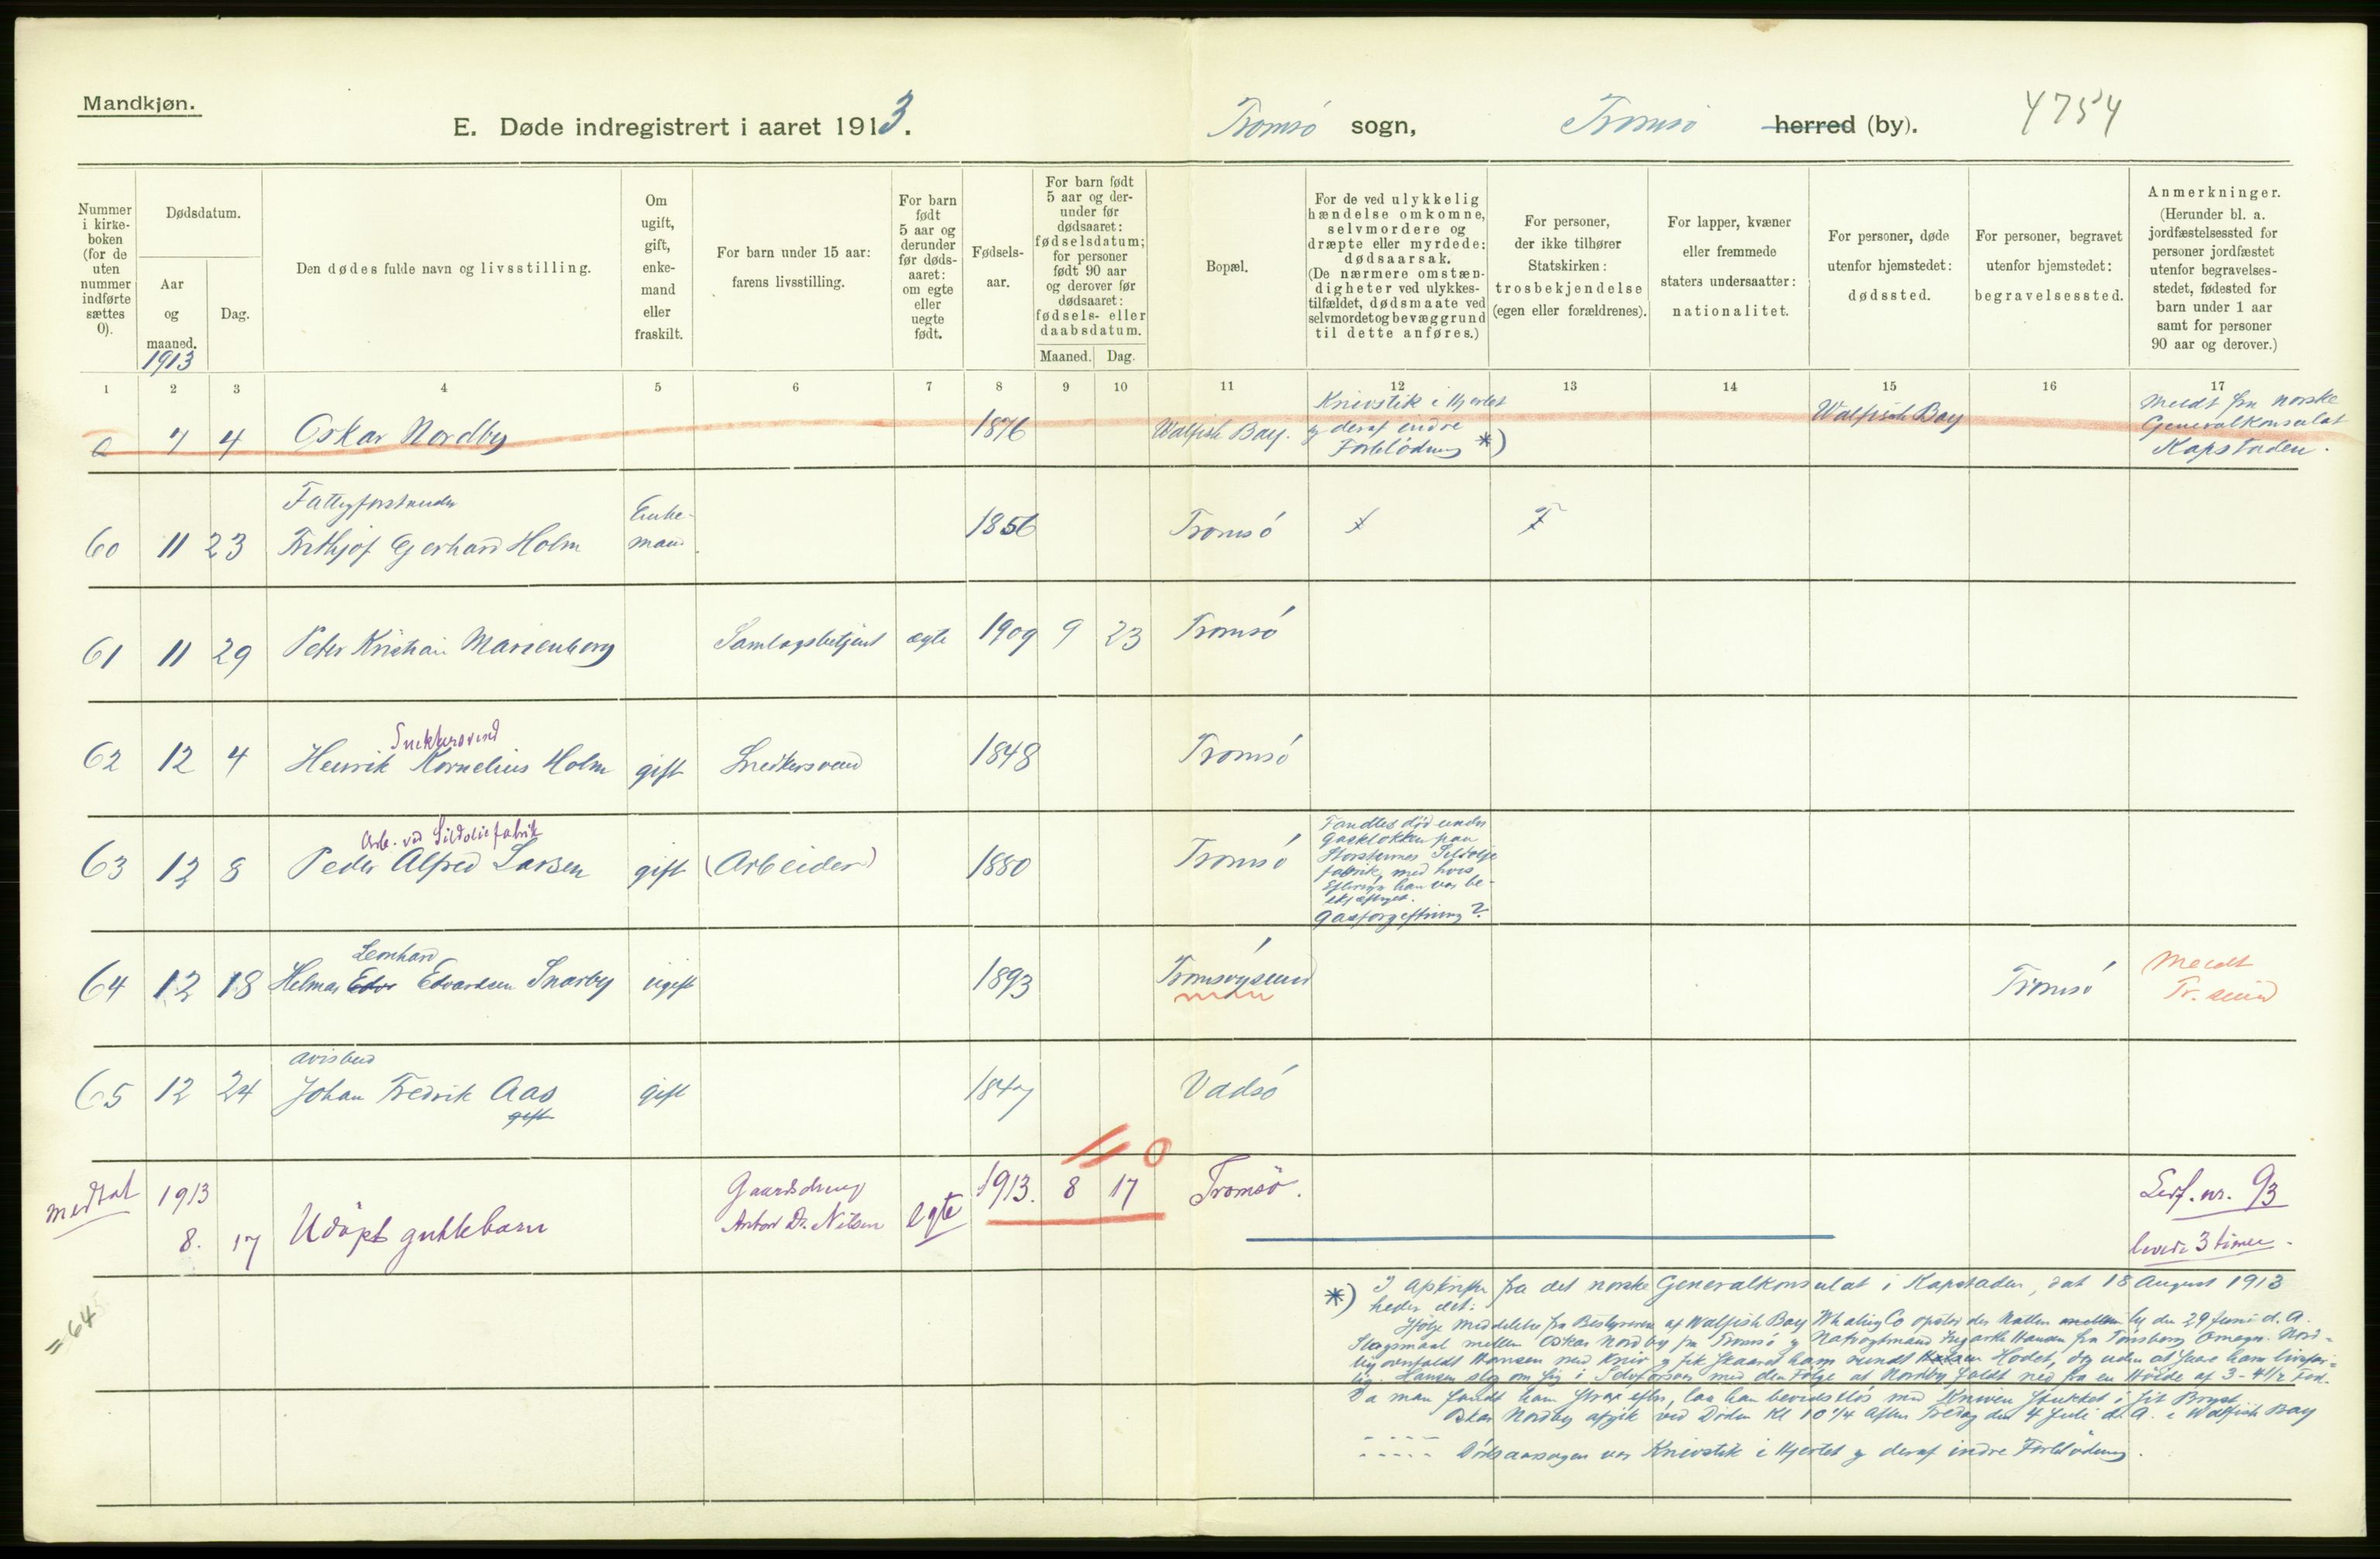 Mandkjøn.
E. Døde indregistrert i aaret 1913.
Tromsö sogn, Tromsö herred (by).
4754
Nummer i kirke-boken (for de uten nummer indførte sættes 0).
Dødsdatum.
Aar og maaned.
1913
Dag.
Den dødes fulde navn og livsstilling.
Om ugift, gift, enke-mand eller fraskilt.
For barn under 15 aar: farens livsstilling.
For barn født 5 aar og derunder før døds-aaret: om egte eller uegte født.
Fødsels-aar.
For barn født 5 aar og der-under før dødsaaret: fødselsdatum; for personer født 90 aar og derover før dødsaaret: fødsels- eller daabsdatum.
Maaned. Dag.
Bopæl.
For de ved ulykkelig hændelse omkomne, selvmordere og dræpte eller myrdede: dødsaarsak. (De nærmere omstæn-digheter ved ulykkes-tilfældet, dødsmaate ved selvmordet og bevæggrund til dette anføres.)
For personer, der ikke tilhører Statskirken: trosbekjendelse (egen eller forældrenes).
For lapper, kvæner eller fremmede staters undersaatter: nationalitet.
For personer, døde utenfor hjemstedet: dødssted.
For personer, begravet utenfor hjemstedet: begravelsessted.
Anmerkninger. (Herunder bl. a. jordfæstelsessted for personer jordfæstet utenfor begravelses-stedet, fødested for barn under 1 aar samt for personer 90 aar og derover.)
1 2 3 4 5 6 7 8 9 10 11 12 13 14 15 16 17
0 7 4 Oskar Nordby 1876 Walfish Bay. Knivstik i Hjertet
og deraf indre
Forblödning *)
Walfisch Bay
Meldt fra norske
Generalkonsulat
Kapstaden.
Fattigforstander
60 11 23 Frithjof Gerhard Holm Enke-
mand. 1856 Tromsö
61 11 29 Peter Kristian Marienborg Samlagsbetjent ægte 1909 9 23 Tromsö
Snekkersvend
62 12 4 Henrik Kornelius Holm gift Snedkersvend 1848 Tromsö
Arb. ved Sildoliefabrik
63 12 8 Peder Alfred Larsen gift (Arbeider) 1880 Tromsö
Fandtes död under
Gasklokken paa
Storsternes Sildolje
fabrik, med hvis
Eftersyn han var be-
skjæftiget.
Gasforgiftning?
Leonhard
64 12 18 Helmar Edv Edvardsen Snarby ugift 1893 Tromsöysund Tromsö
Meldt
Tr. sund
Avisbud
65 12 24 Johan Fredrik Aas gift 1847 Vadsö
gift
0
medtat 1913
8. 17 Udöpt guttebarn
Gaardsdreng
Anton Dr. Nilsen egte 1913. 8 17 Tromsö.
Levf. nr. 93
levede 3 timer.
= 64
*) I Apskrift fra det norske Generalkonsulat i Kapstaden, dat 18 August 1913
heder det:
Ifölge Meddelelse fra Bestyreren af Walfish Bay Whaling Co opstod der Natten mellem til den 29 Juni d. A.
Slagsmaal mellem Oskar Nordby fra Tromsö og Hansen fra Tönsberg Omegn. Nord-
by overfaldt Hansen med Kniv og fik skaaret ham rundt Hodet, dog uden at saare ham livsfar-
lig. Hansen slog om sig i Selvforsvar med den Fölge at Nordby faldt ned fra en Höide af 3-4 1/2 Fod.
Da man fandt ham strax efter, laa han bevidstlös med Kniven stukket i sit Bryst.
Oskar Nordby afgik ved Döden Kl 10 1/4 Aften Fredag den 4 Juli d. A. i Walfish Bay
Dödsaarsagen var Knivstik i Hjertet og deraf indre Forblödning.